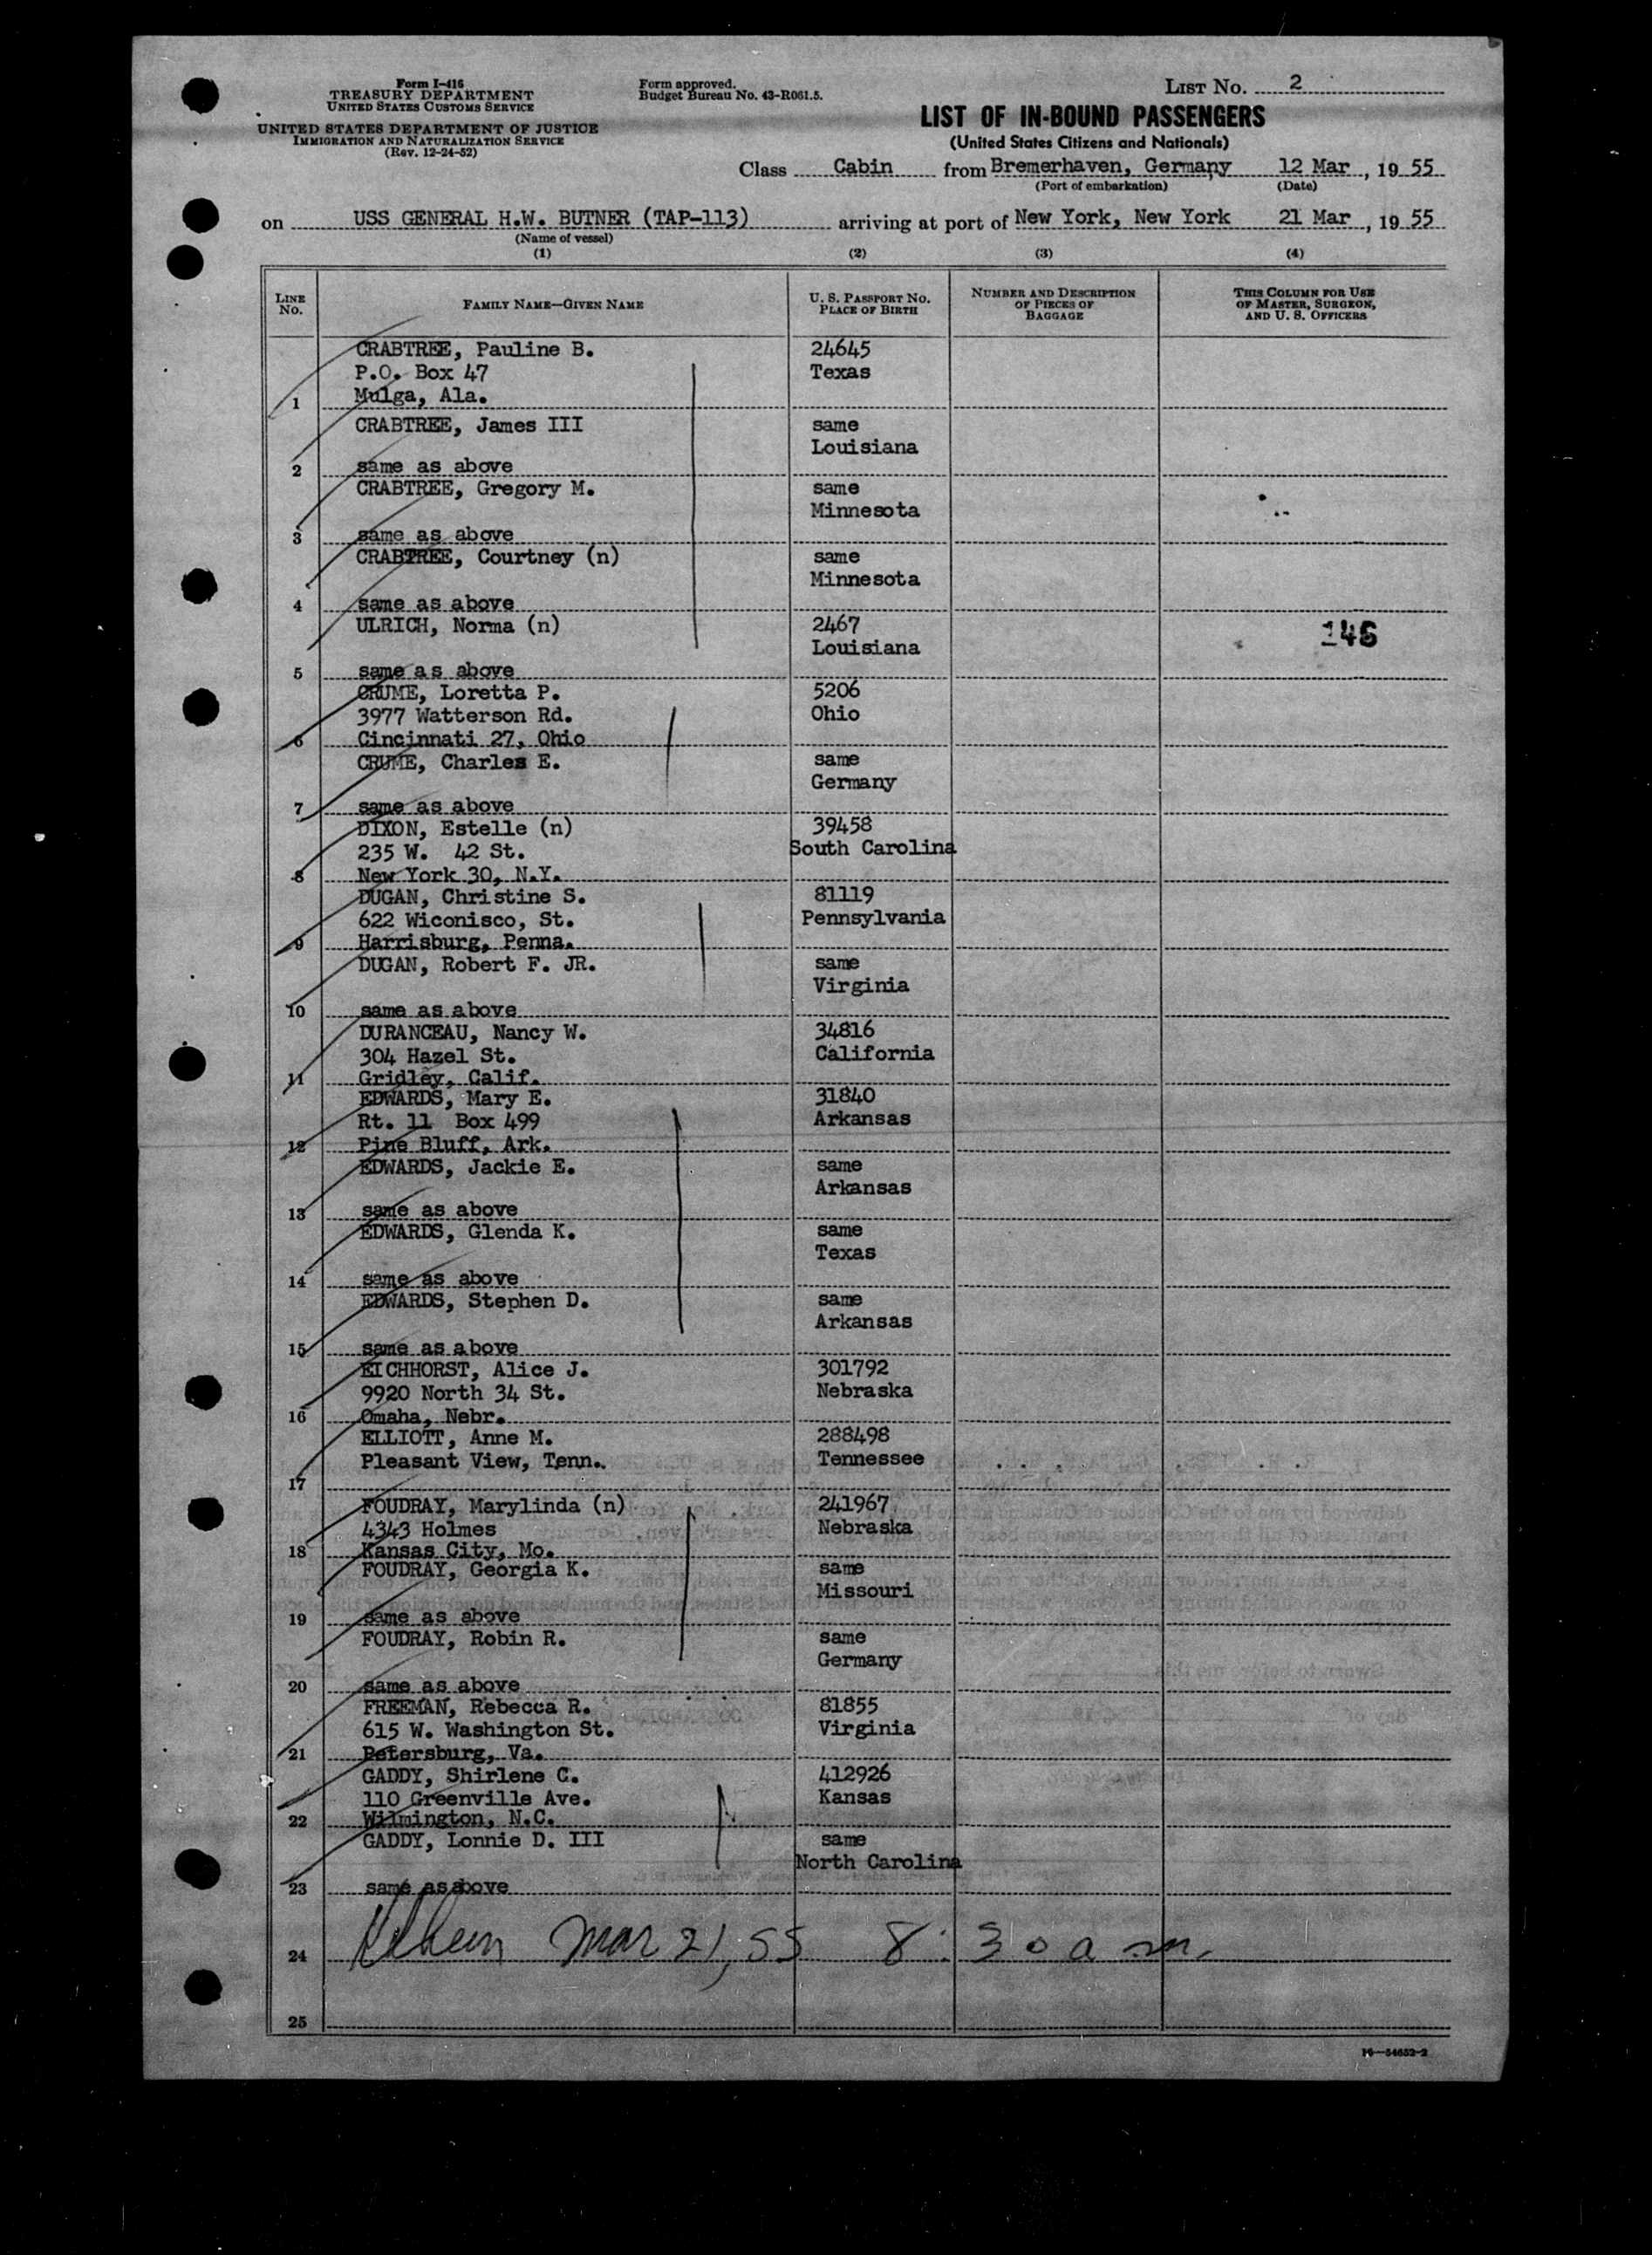 Form I-416
TREASURY DEPARTMENT
UNITED STATES CUSTOMS SERVICE
UNITED STATES DEPARTMENT OF JUSTICE
IMMIGRATION AND NATURALIZATION SERVICE
(Rev. 12-24-52)
Form approved.
Budget Bureau No. 43-R061.5.
LIST No. 2
LIST OF IN-BOUND PASSENGERS
(United States Citizens and Nationals)
Class Cabin from Bremerhaven, Germany 12 Mar, 19 55
(Port of embarkation) (Date)
on USS GENERAL H.W. BUTNER (TAP-113) arriving at port of New York, New York 21 Mar, 19 55
(Name of vessel)
(1) (2) (3) (4)
LINE No. FAMILY NAME—GIVEN NAME U. S. PASSPORT NO. PLACE OF BIRTH NUMBER AND DESCRIPTION OF PIECES OF BAGGAGE THIS COLUMN FOR USE OF MASTER, SURGEON, AND U. S. OFFICERS
CRABTREE, Pauline B. 24645
P.O. Box 47 Texas
1 Mulga, Ala.
CRABTREE, James III same
Louisiana
2 same as above
CRABTREE, Gregory M. same
Minnesota
3 same as above
CRABTREE, Courtney (n) same
Minnesota
4 same as above
ULRICH, Norma (n) 2467 146
Louisiana
5 same as above
CRUME, Loretta P. 5206
3977 Watterson Rd. Ohio
6 Cincinnati 27, Ohio
CRUME, Charles E. same
Germany
7 same as above
DIXON, Estelle (n) 39458
235 W. 42 St. South Carolina
8 New York 30, N.Y.
DUGAN, Christine S. 81119
622 Wiconisco, St. Pennsylvania
9 Harrisburg, Penna.
DUGAN, Robert F. JR. same
Virginia
10 same as above
DURANCEAU, Nancy W. 34816
304 Hazel St. California
11 Gridley, Calif.
EDWARDS, Mary E. 31840
Rt. 11 Box 499 Arkansas
12 Pine Bluff, Ark.
EDWARDS, Jackie E. same
Arkansas
13 same as above
EDWARDS, Glenda K. same
Texas
14 same as above
EDWARDS, Stephen D. same
Arkansas
15 same as above
EICHHORST, Alice J. 301792
9920 North 34 St. Nebraska
16 Omaha, Nebr.
ELLIOTT, Anne M. 288498
Pleasant View, Tenn. Tennessee
17
FOUDRAY, Marylinda (n) 241967
4343 Holmes Nebraska
18 Kansas City, Mo.
FOUDRAY, Georgia K. same
Missouri
19 same as above
FOUDRAY, Robin R. same
Germany
20 same as above
FREEMAN, Rebecca R. 81855
615 W. Washington St. Virginia
21 Petersburg, Va.
GADDY, Shirlene C. 412926
110 Greenville Ave. Kansas
22 Wilmington, N.C.
GADDY, Lonnie D. III same
North Carolina
23 same as above
24 Mar 21, 55 8:30 a m.
25
16—54652-2